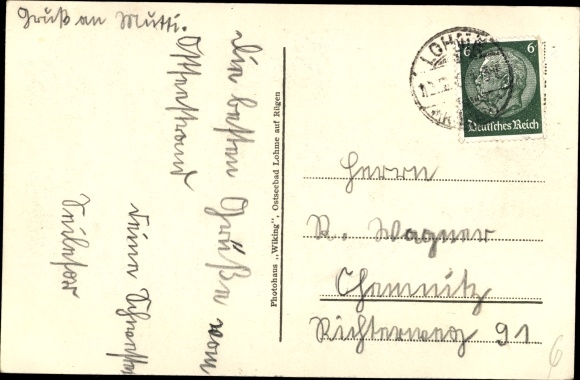 Gruß an Mutti.
Die besten Grüße vom
Ostseestrand
Deine Schwester
LOHME
6 6
Deutsches Reich
Photohaus „Wiking", Ostseebad Lohme auf Rügen
Herrn
R. Wagner
Chemnitz
Richterweg 91
6